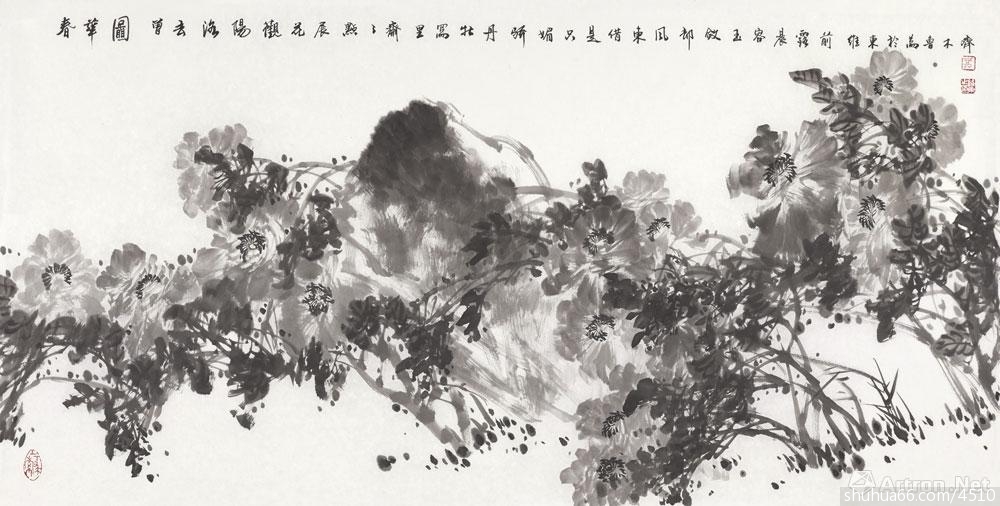 春華圖 曾去洛陽觀花辰點々齋里寫牡丹媚只是借東風玉容晨露前 維東於烏魯木齊
Artron.Net
shuhua66.com/4510